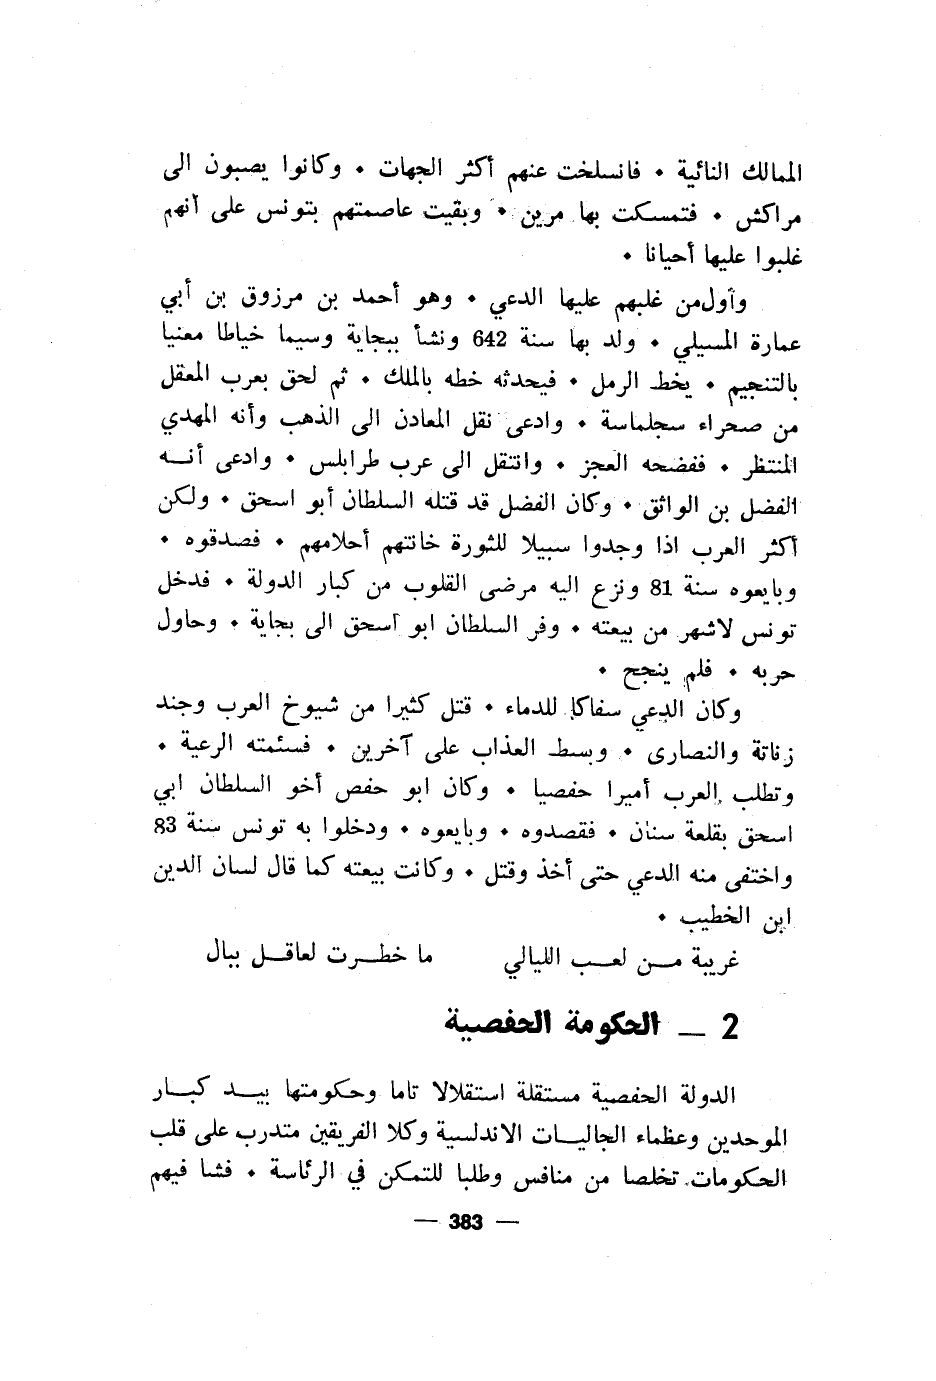 الممالك النائية • فانسلخت عنهم أكثر الجهات • وكانوا يصبون الى
مراكش • فتمسكت بها مرين • وبقيت عاصمتهم بتونس على أنهم
غلبوا عليها أحيانا •
وأول من غلبهم عليها الدعي • وهو أحمد بن مرزوق بن أبي
عمارة المسيلي • ولد بها سنة 642 ونشأ ببجاية وسيما خياطا معنيا
بالتنجيم • يخط الرمل • فيحدثه خطه بالملك • ثم لحق بعرب المعقل
من صحراء سجلماسة • وادعى نقل المعادن الى الذهب وأنه المهدي
المنتظر • ففضحه العجز • وانتقل الى عرب طرابلس • وادعى أنــه
الفضل بن الواثق • وكان الفضل قد قتله السلطان أبو اسحق • ولكن
أكثر العرب اذا وجدوا سبيلا للثورة خانتهم أحلامهم • فصدقوه •
وبايعوه سنة 81 ونزع اليه مرضى القلوب من كبار الدولة • فدخل
تونس لاشهر من بيعته • وفر السلطان ابو اسحق الى بجاية • وحاول
حربه • فلم ينجح •
وكان الدعي سفاكا للدماء • قتل كثيرا من شيوخ العرب وجند
زناتة والنصارى • وبسط العذاب على آخرين • فسئمته الرعية •
وتطلب العرب أميرا حفصيا • وكان ابو حفص أخو السلطان ابي
اسحق بقلعة سنان • فقصدوه • وبايعوه • ودخلوا به تونس سنة 83
واختفى منه الدعي حتى أخذ وقتل • وكانت بيعته كما قال لسان الدين
ابن الخطيب •
غريبة مــن لعــب الليالي ما خطــرت لعاقــل ببال
2 — الحكومة الحفصية
الدولة الحفصية مستقلة استقلالا تاما وحكومتها بيــد كبــار
الموحدين وعظماء الجاليــات الاندلسية وكلا الفريقين متدرب على قلب
الحكومات. تخلصا من منافس وطلبا للتمكن في الرئاسة • فشا فيهم
— 383 —